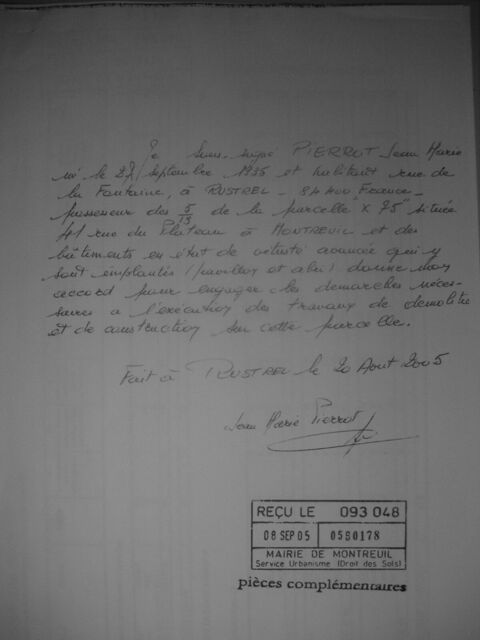 Je sous-signé PIERROT Jean Marie
né le 27 septembre 1935 et habitant rue de
la Fontaine, à RUSTREL - 84400 France -
possesseur des 5/13 de la parcelle "X 75" située
41 rue du Plateau à MONTREUIL et des
bâtiments en état de vétusté avancée qui y
sont implantés (pavillon et abri) donne mon
accord pour engager les démarches néces-
saires à l'exécution des travaux de démolition
et de construction sur cette parcelle.
Fait à RUSTREL le 20 Août 2005
Jean Marie Pierrot
REÇU LE 093 048
08 SEP 05 05B0178
MAIRIE DE MONTREUIL
Service Urbanisme (Droit des Sols)
pièces complémentaires